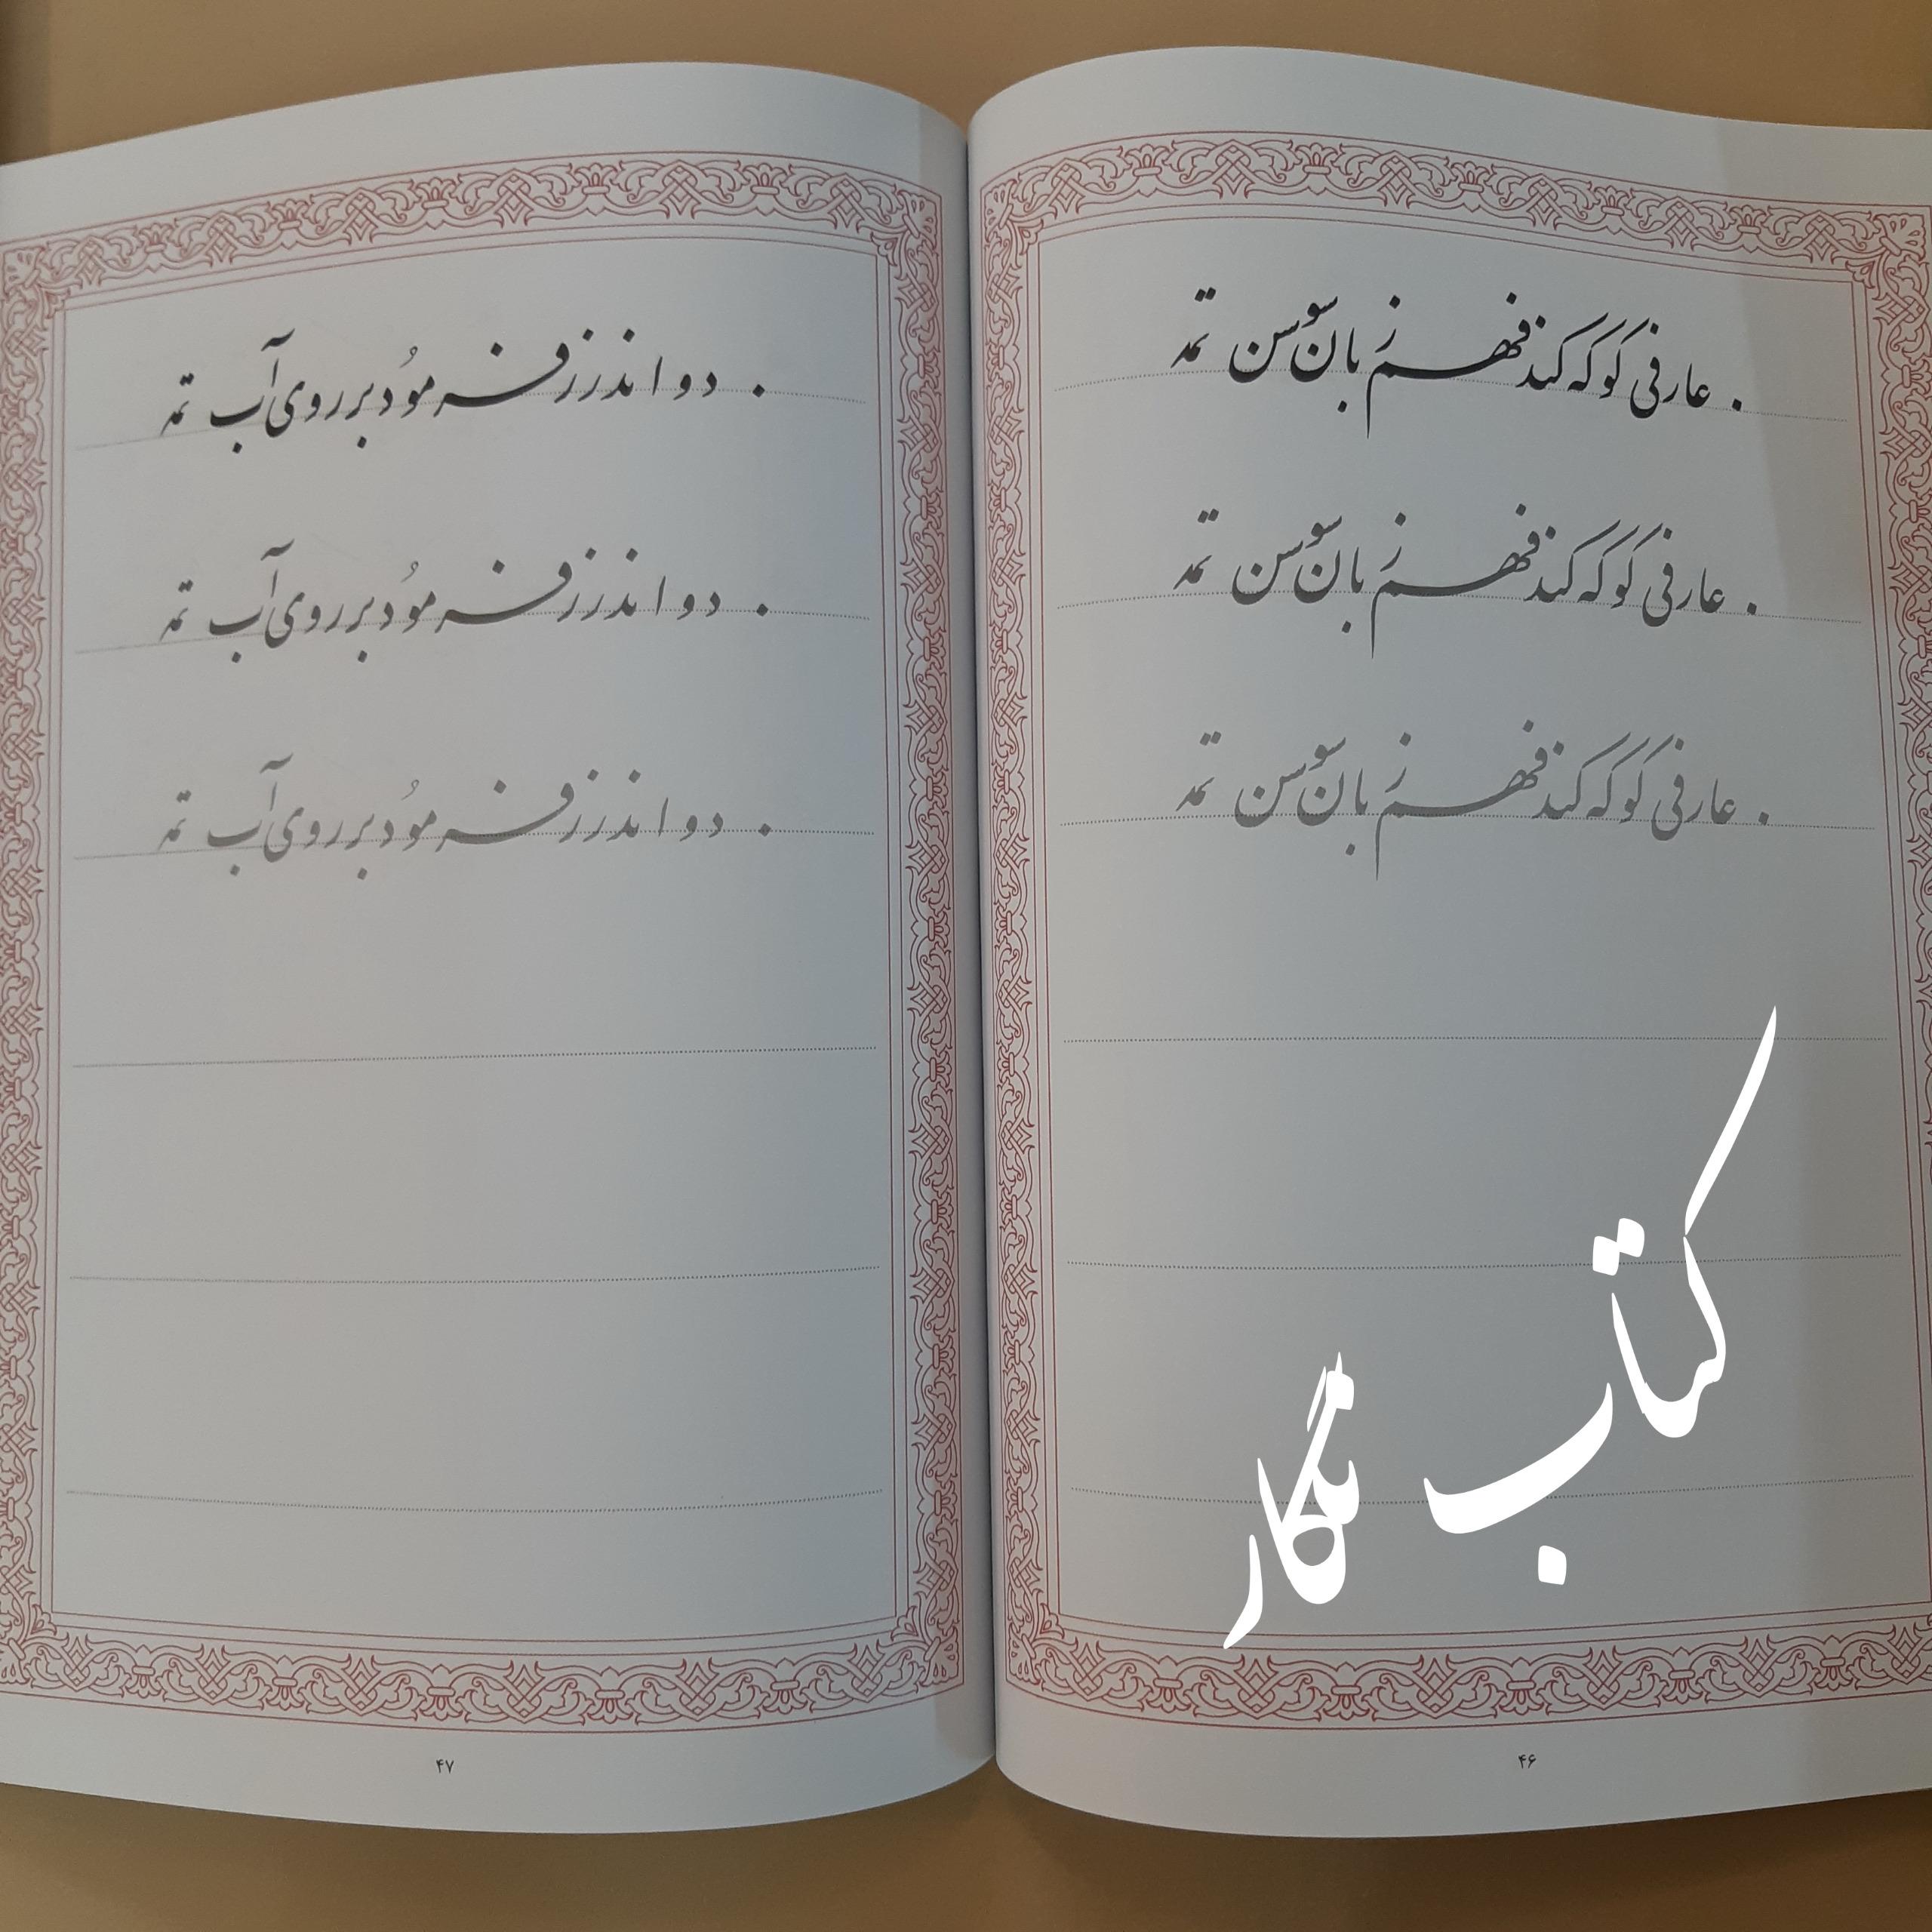 عارفی کو که کند فهم زبان سوسن
عارفی کو که کند فهم زبان سوسن
عارفی کو که کند فهم زبان سوسن
کتاب نگار
۴۶
دو اندرز فرمود بر روی آب
دو اندرز فرمود بر روی آب
دو اندرز فرمود بر روی آب
۴۷